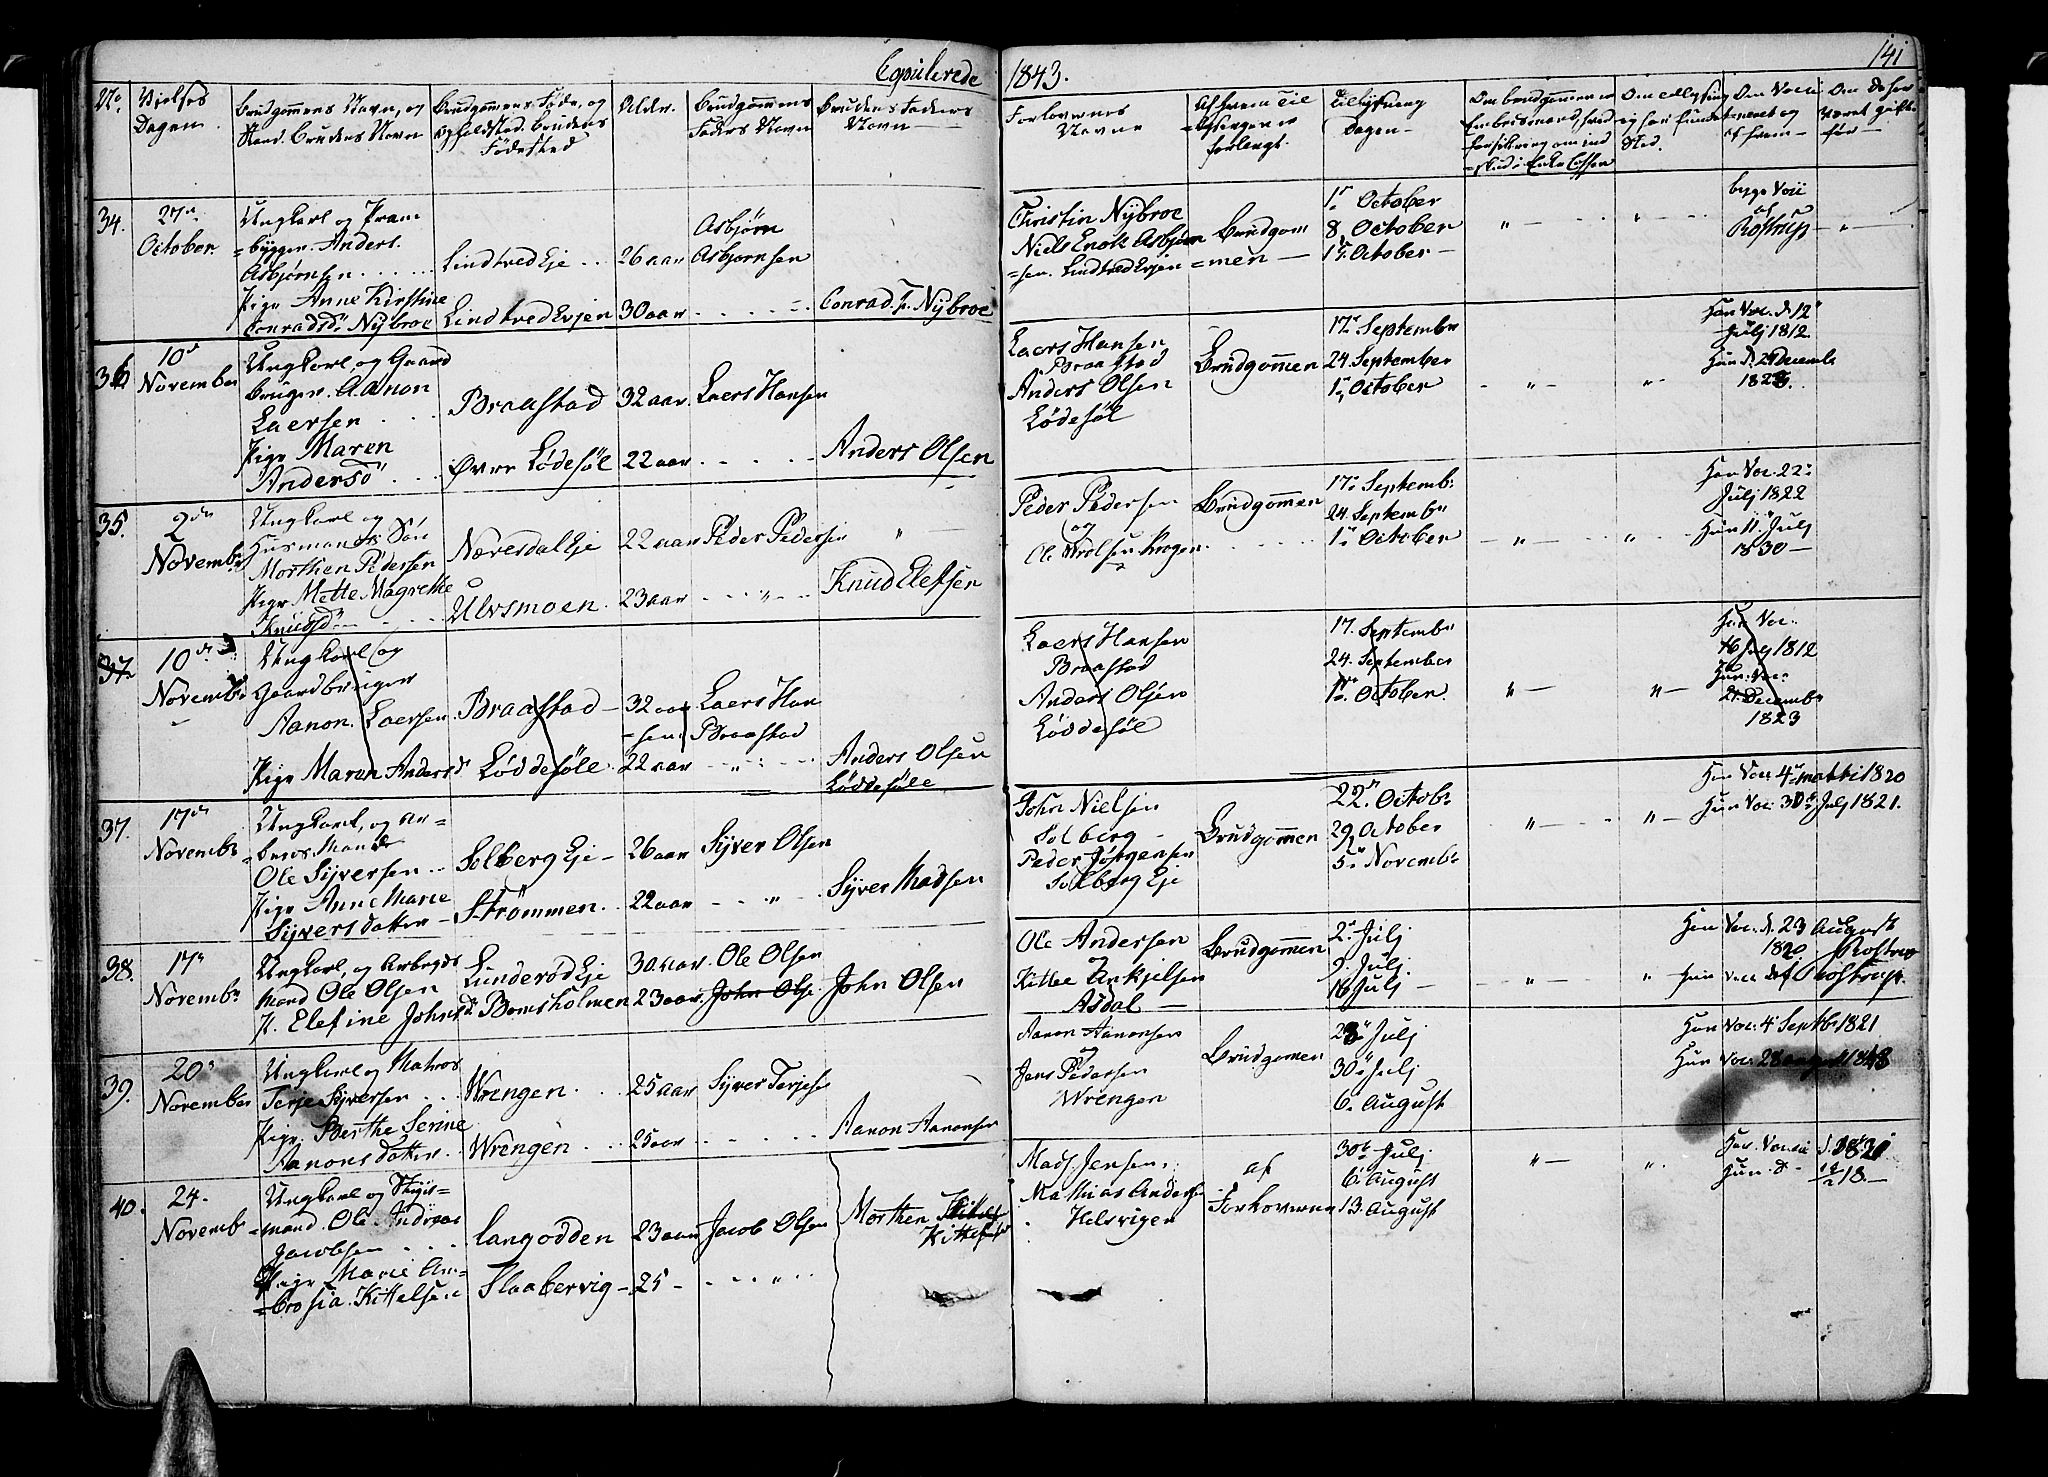 Copulerede
1843.
141
No.
Vielses Dagen
Brudgommens Navn, og Stand. Brudens Navn
Brudgommens Føde, og Opholdsted. Brudens Fødested
Alder.
Brudgommens Faders Navn
Brudens Faders Navn
Forlovernes Navne
Af hvem Tillysningen er forlangt.
Tillysning Dagen
Om Brudgommen er Embedsmand,
Om Tillysning og har fundet Sted.
Om Vaccineret og af hvem
Om de har været gifte før
34.
27n October.
Ungkarl og Pram=
=bygger. Anders.
Asbjørnsen
Pige Anne Kirstine
Conradsdr Nÿbroe
Lindtved Eje
Lindtved Eyjen
26 aar
30 aar
Asbjørn
Asbjørnsen
Conrad. F. Nÿbroe
Christin Nÿbroe
Niels Enok Asbjørn
=sen. Lindtved Eyjen
Brudgom
=men
1n October
8 October
15 October
Rostrup
36
10d November
Ungkarl og Gaard
bruger. Aanon
Laersen
Pige Maren
Andersd
Braastad
Øvre Lødesøl
32 aar.
22 aar
Laers Hansen
Anders Olsen
Laers Hansen
Braastad
Anders Olsen
Lødesøl
Brudgommen
17 Septembr
24. September
1n October
Han Vac. d 12
Julj 1812
Hun d. 21 Decemb
1823.
35.
2dn Novembr
Ungkarl og
Husmands Søn
Morthen Pedersen
Pige Mette Magrethe
Knudsd
Næresdal Eje
Ulvsmoen.
22 aar
23 aar
Peder Pedersen
Knud Elefsen
Peder Pedersen
og
Brudgommen
17. Septemb.
24. Septembr
1n October
Han Vac. 22
Julj 1822
Hun 11. Julj
1830
37
10d Novembr
Ungkarl og
Gaardbruger
Aanon. Laersen
Pige Maren Andersd
Braastad
Løddesøle
32 aar
22 aar
Laers Han
=sen Braastad
Anders Olsen
Løddesøle
Laers Hansen
Braastad
Anders Olsen
Løddesøl
17. Septembr
24. September
1. October.
Han Vac.
16 July 1812
Hun. Vac.
21 Decembr
1823
37.
17dn Novembr
Ungkarl, og Ar=
=beids Mand
Ole Sÿversen
Pige Anne Marie
Sÿvers datter
Solberg Eje
Strømmen
26 aar
22 aar
Sÿver Olsen
Sÿver Madsen
John Nielsen
Solberg
Peder Jørgensen
Solberg Eje
Brudgommen
22. Octobr
29 October
5 Novembr
Han Vac. 4 1820
Hun Vac. 30 July 1821.
38.
17n Novembr
Ungkarl, og Arbeyds
Mand Ole Olsen
P. Elefine Johnsd
Lunderød Eje
Bomsholmen
30 aar.
23 aar.
Ole Olsen
John Olse
John Olsen
Ole Andersen
og
Kittel Ankjelsen
Asdal
Brudgommen
2. Julj
9. Julj
16 Julj
Han Vac. d. 23 August
1820. Rostrup
Hun Vac. af Rostrup.
39.
20n November
Ungkarl og Matros
Terje Sÿversen
Pige. Berthe Serine
Aanons datter.
Wrengen
Wrengen
25 aar
25 aar
Sÿver Terjesen
Aanon Aanonsen
Aanon Aanonsen
og
Jens Pedersen
Wrengen
Brudgomen
23 Julj
30 Julj
6. August
Han Vac. 4 Septbr 1821
Hun Vac. 28 august 1848
40.
24. Novemb
Ungkarl og Skips=
=mand. Ole Andreas
Jacobsen
Pige Marie Am=
=brosia. Kittelsen
Langodden
Flaabervig
23 aar
25
Jacob Olsen
Morthen
Kittelsen
Mads. Jensen
Mathias Andersen
Helsvigen
af
Forloverne
30 Julj
6. August
13. August
Han. Vaccin 1820
Hun. d. 18.